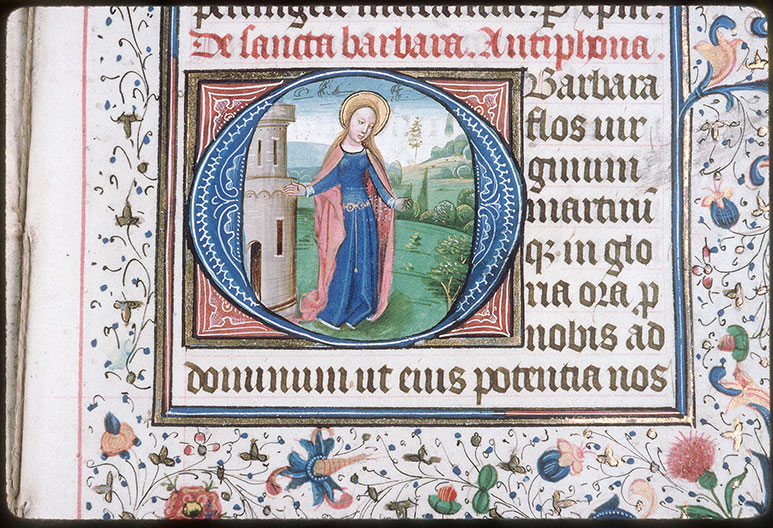 De sancta barbara. Antiphona.
O Barbara
flos uir
ginum
martirū
qꝫ in glo
ria ora p
nobis ad
dominum ut eius potentia nos